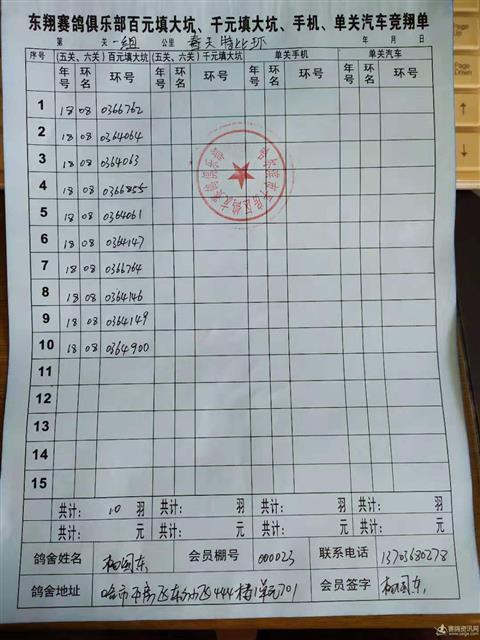 东翔赛鸽俱乐部百元填大坑、千元填大坑、手机、单关汽车竞翔单
第 天 一组 公里 普天特比环 年 月 日
序号 (五关、六关)百元填大坑 (五关、六关)千元填大坑 单关手机 单关汽车
年号 环名 环号 年号 环名 环号 年号 环名 环号 年号 环名 环号
1 18 08 0366762
2 18 08 0364064
3 18 08 0364063
4 18 08 0366855
5 18 08 0364061
6 18 08 0364147
7 18 08 0366764
8 18 08 0364146
9 18 08 0364149
10 18 08 0364900
11
12
13
14
15
共计: 10 羽 共计: 羽 共计: 羽 共计: 羽
共计: 元 共计: 元 共计: 元 共计: 元
鸽舍姓名 国东 会员棚号 000023 联系电话 13703680278
鸽舍地址 哈市平房区东 444栋1单元701 会员签字 国东
赛鸽资讯网